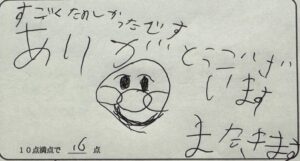 すごくたのしかったです
ありがとうございます
またきます
10点満点で 16 点